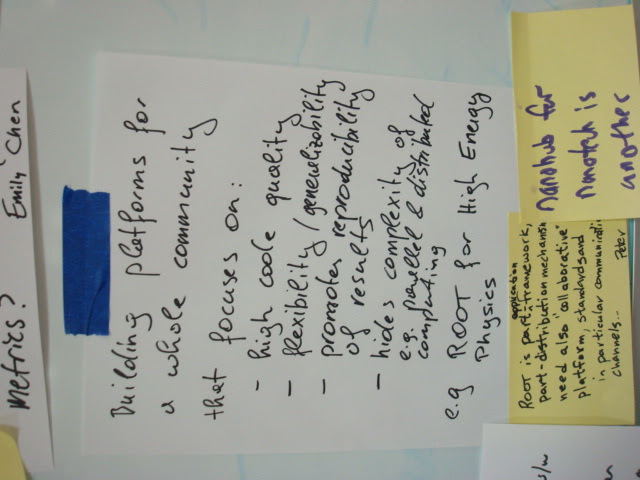 metrics? Emily Chen
Building platforms for
a whole community
that focuses on:
- high code quality
- flexibility / generelizability
- promotes reproducibility
of results
- hides complexity of
e.g. parellel & distributed
computing
e.g ROOT for High Energy
Physics
s/w
application
ROOT is part-framework,
part-distribution mechanism
need also "collaborative"
platform, standards and
in particular communication
channels...
Peter
nanohub for
nanotech is
another